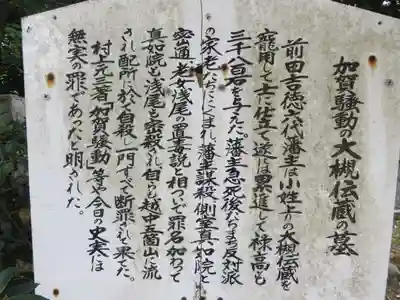 加賀騒動の大槻伝蔵の墓
前田吉徳六代藩主は小姓上りの大槻伝蔵を
寵用して士に仕立て遂には累進して禄高も
三千八百石を与えた。藩主急死後たちまち反対派
の家老たちにくまれ、藩主謀殺、側室真如院と
密通、老女浅尾の置毒説と相ついで罪名加わって
真如院も浅尾も密殺され、自らも越中五箇山に流
され配所に於て自殺し一門すべて断罪されて果てた。
村上元三著「加賀騒動」等で今日の史実は
無実の罪であったと明された。